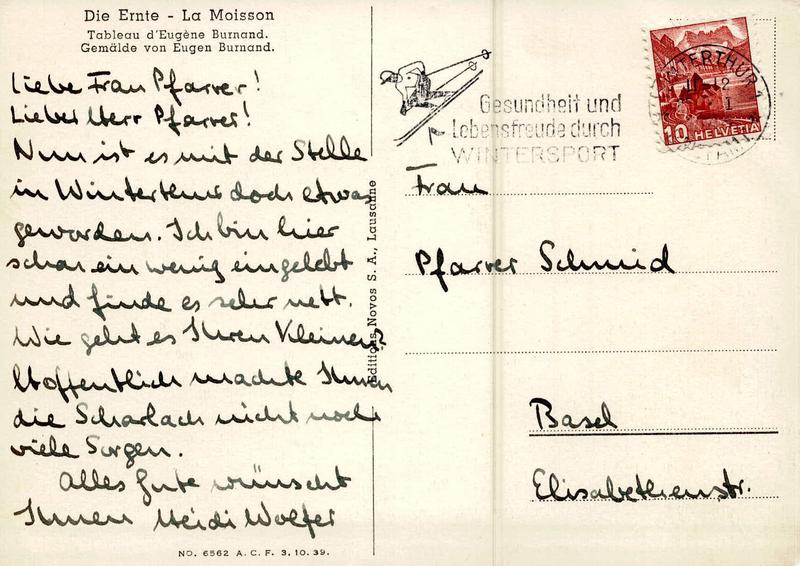 Die Ernte - La Moisson
Tableau d'Eugène Burnand.
Gemälde von Eugen Burnand.
Liebe Frau Pfarrer!
Lieber Herr Pfarrer!
Nun ist es mit der Stelle
in Winterthur doch etwas
geworden. Ich bin hier
schon ein wenig eingelebt
und finde es sehr nett.
Wie geht es Ihren Kleinen?
Hoffentlich machte Ihnen
die Scharlach nicht noch
viele Sorgen.
Alles Gute wünscht
Ihnen Heidi Wolfer
NO. 6562 A. C. F. 3. 10. 39.
Editions Novos S. A., Lausanne
Gesundheit und
Lebensfreude durch
WINTERSPORT
WINTERTHUR 1
10 HELVETIA
Frau
Pfarrer Schmid
Basel
Elisabethenstr.